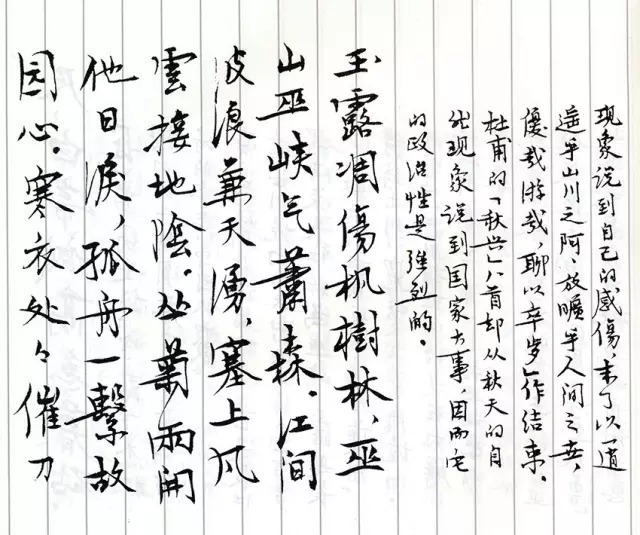 现象说到自己的感傷,末了以「逍
遥乎山川之阿、放曠乎人间之世,
優哉游哉,聊以卒岁」作结束。
杜甫的「秋兴」八首却从秋天的自
然现象说到国家大事,因而它
的政治性是强烈的。
玉露凋傷枫樹林,巫
山巫峡气蕭森。江间
波浪兼天湧,塞上风
雲接地陰。丛菊兩開
他日淚,孤舟一繫故
园心。寒衣处々催刀